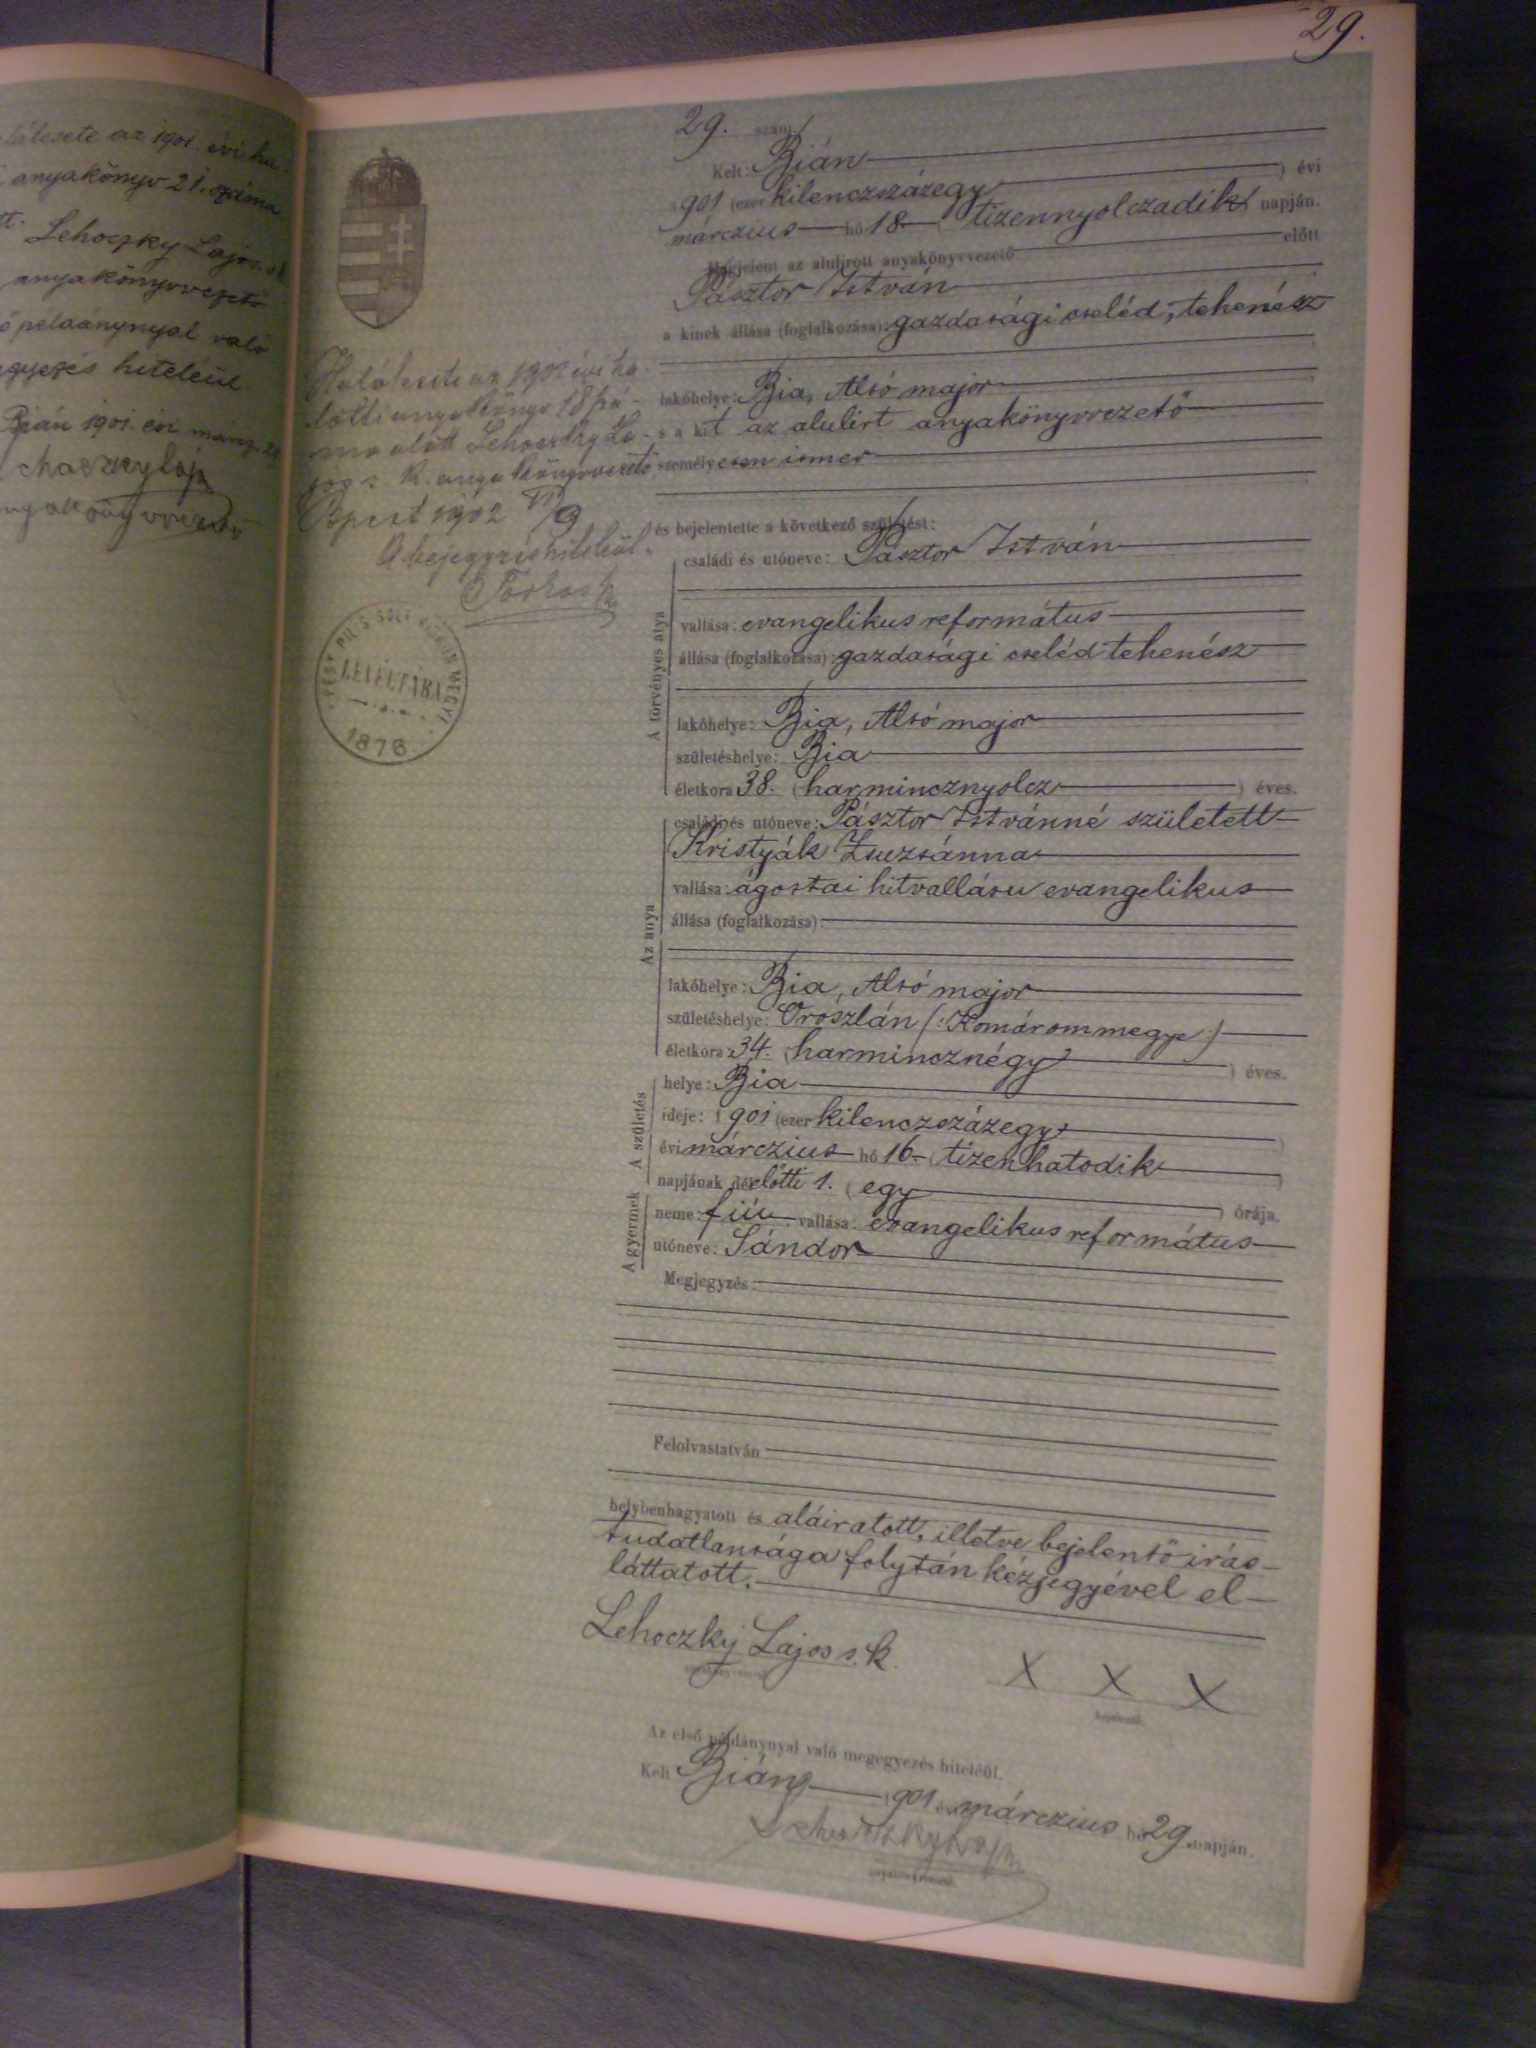 29.
lálesete az 1901. évi ha-
anyakönyv 21. száma
tt.
Lehoczky Lajos s.k.
anyakönyvvezető
ő példánynyal való
gyezés hiteléül
Bián 1901. évi márcz. 29
anyakönyvvezető
Halálesete az 1902 évi ha-
lotti anyakönyv 18 szá-
ma alatt Lehoczky La-
jos s. k. anyakönyvvezető
Bpest 1902 VI/9
A bejegyzés hiteléül
PEST PILIS SOLT KISKUN MEGYE
LEVÉLTÁRA
1876
29. szám
Kelt: Bián
1901 (ezer kilenczszázegy ) évi
márczius hó 18. ( tizennyolczadik ) napján.
Megjelent az alulirott anyakönyvvezető előtt
Pásztor István
a kinek állása (foglalkozása): gazdasági cseléd, tehenész
lakóhelye: Bia, Alsó major
s a kit az alulirt anyakönyvvezető
személyesen ismer
és bejelentette a következő születést:
A törvényes atya
családi és utóneve: Pásztor István
vallása: evangelikus református
állása (foglalkozása): gazdasági cseléd tehenész
lakóhelye: Bia, Alsó major
születéshelye: Bia
életkora 38. (harmincznyolcz ) éves.
Az anya
családi és utóneve: Pásztor Istvánné született
Kristyák Zsuzsánna
vallása: ágostai hitvallásu evangelikus
állása (foglalkozása):
lakóhelye: Bia, Alsó major
születéshelye: Oroszlán (: Komárommegye :)
életkora: 34. (harmincznégy ) éves.
A születés
helye: Bia
ideje: 1901 (ezer kilenczszázegy )
évi márczius hó 16. ( tizenhatodik )
napjának délelőtti 1. ( egy ) órája.
A gyermek
neme: fiu vallása: evangelikus református
utóneve: Sándor
Megjegyzés:
Felolvastatván
helybenhagyatott és aláiratott, illetve bejelentő irás-
tudatlansága folytán kézjegyével el-
láttatott.
Lehoczky Lajos s. k.
X X X
anyakönyvvezető
bejelentő.
Az első példánynyal való megegyezés hiteléül.
Kelt Bián 1901 évi márczius hó 29. napján.
Lehoczky Lajos
anyakönyvvezető